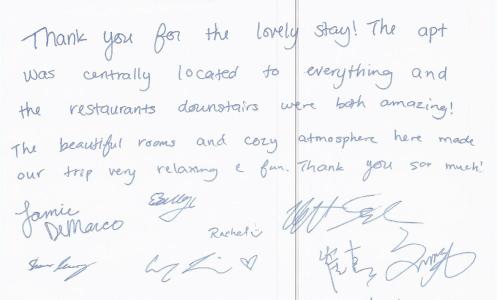 Thank you for the lovely stay! The apt
was centrally located to everything and
the restaurants downstairs were both amazing!
The beautiful rooms and cozy atmosphere here made
our trip very relaxing & fun. Thank you soo much!
Jamie
DeMarco
Rachel